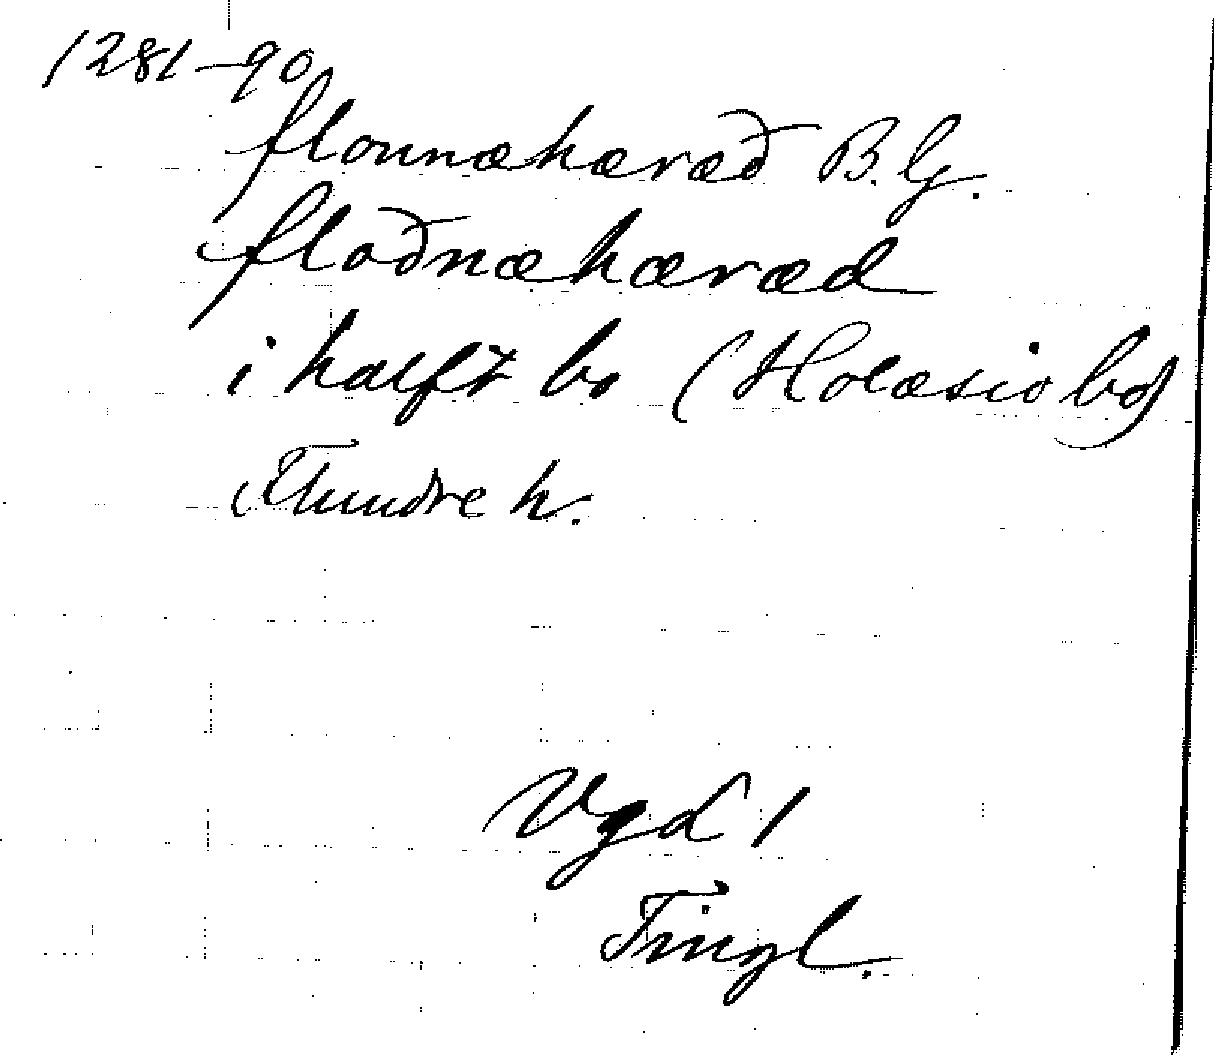 1281-90
flonnæhæræð B. G.
floðnæhæræd
i halft bo (Holæsio bo)
Flundre h.
Vgd 1
Tingl.